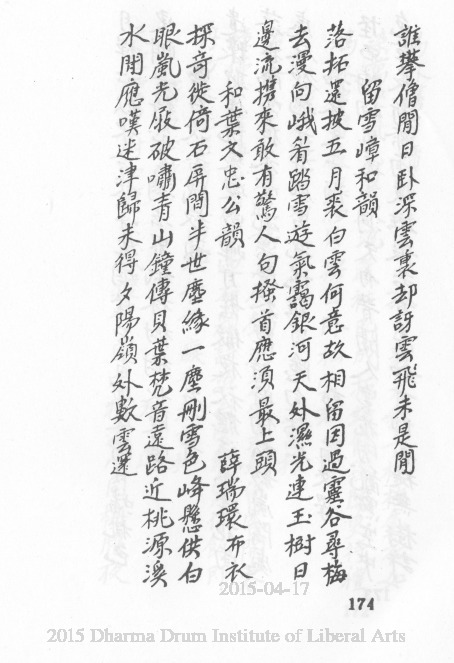 誰攀僧閒日臥深雲裏却訝雲飛未是閒
留雪嶂和韻
落拓還披五月裘白雲何意故相留因過靈谷尋梅
去漫向峨眉踏雪遊氣靄銀河天外濕光連玉樹日
邊流携來敢有驚人句搔首應須最上頭
和葉文忠公韻
薛瑞環布衣
採奇徙倚石屏間半世塵緣一塵刪雪色峰懸供白
眼嵐光展破嘯青山鐘傳貝葉梵音遠路近桃源溪
水閒應嘆迷津歸未得夕陽嶺外數雲還
2015-04-17
174
2015 Dharma Drum Institute of Liberal Arts